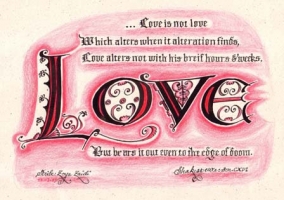 ... Love is not love
Which alters when it alteration finds,
Love alters not with his brief hours & weeks,
Love
But bears it out even to the edge of doom.